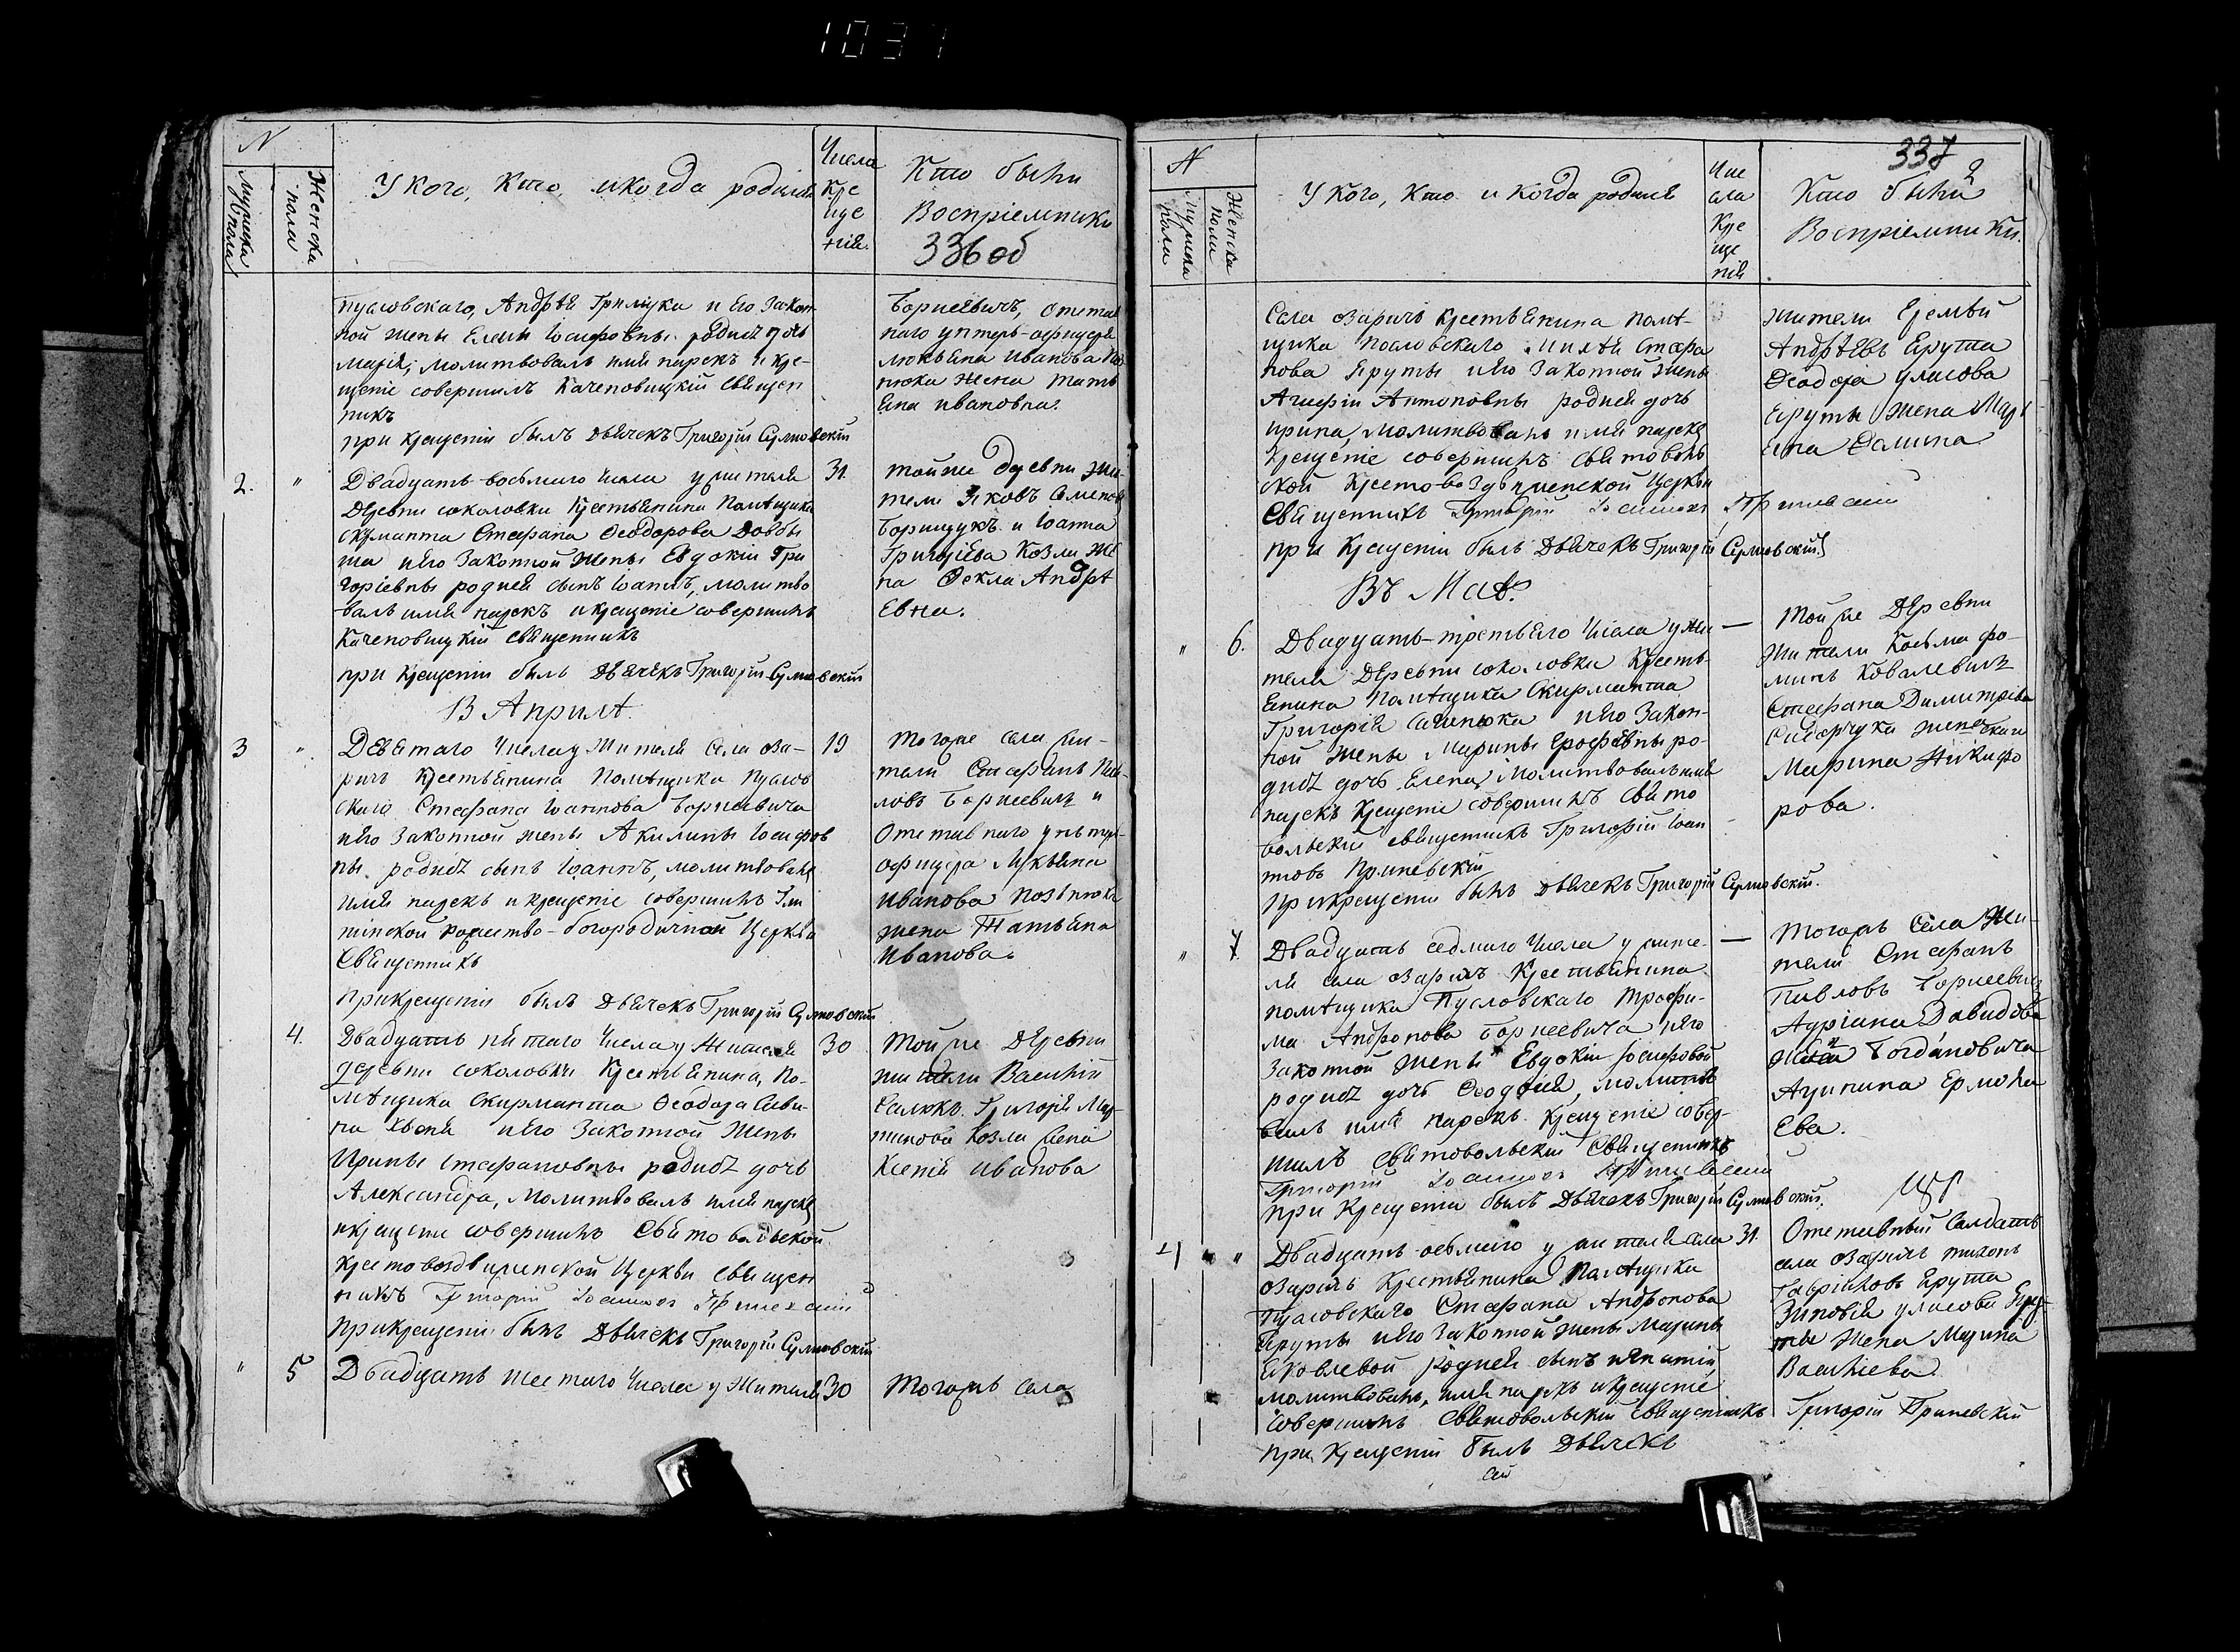 1037
N
Мужеска пола
Женска пола
У кого, Кто, и когда родился
Числа Кре ще нія.
Кто были
Воспріемники
336 об
пусловскаго, Андрѣя Грищука и Его Закон
ной жены Елены Іосифовны родися дочь
Марія, молитвовалъ имя нарекъ и кре-
щеніе совершилъ Каченовицкій Священ
никъ
при крещеніи былъ Дьячекъ Григорій
Борисевичъ, Отстав
наго унтеръ-офицера
Лукьяна Иванова
жена Тать
яна Ивановна.
2. " Двадцать-восьмаго Числа у жителя 31.
Деревни соколовки Крестьянина Помѣщика
Скирмонта Стефана Ѳеодорова
и его Законной Жены Евдокіи Гри
горіевны родися сынъ Іоаннъ, молитво
валъ имя нарекъ и крещеніе совершилъ
Каченовицкій священникъ
при крещеніи былъ Дьячекъ Григорій
Той же деревни жи-
тели Яковъ Семеновъ
Борищукъ и Іоанна
Григоріева Козла же
на Ѳекла Андрѣ
евна.
В Априлѣ.
3 " Девятаго Числа у Жителя Села Оза-
ричъ Крестьянина Помѣщика Пуслов
скаго Стефана Іоаннова Борисевича
и его Законной жены Акилины Іосифов
ны родися сынъ Іоаннъ, молитвовалъ
имя нарекъ и крещеніе совершилъ
Рождество-богородичной Церкви
Священникъ
при крещеніи былъ Дьячекъ Григорій
19
Того же села жи-
тели Стефанъ Пав-
ловъ Борисевичъ и
Отставнаго унтеръ-
офицера Лукьяна
Иванова
жена Татьяна
Иванова.
4. Двадцать пятаго Числа у Жителя 30
деревни соколовки Крестьянина, По-
мѣщика Скирмонта Ѳеодора Сави-
на и его Законной Жены
Ирины Стефановны родися дочь
Александра, Молитвовалъ имя нарекъ
и крещеніе совершилъ Святовольской
крестовоздвиженской Церкви Священ
никъ Григорій Іоанновъ
При крещеніи былъ Дьячекъ Григорій
Той же Деревни
жители Василій
Григорія Мар-
тинова Козла жена
Ксенія Иванова
" 5 Двадцать шестаго Числа у Жителя 30
Тогожъ села
N
Мужеска пола
Женска пола
У кого, Кто и когда родился
Чи сла Кре ще нія
337
2
Кто были
Воспріемники.
Села Озаричъ Крестьянина помѣ-
щика Пословскаго Стефа
нова Яруты и его Законной Жены
Агафіи Антоновны родися дочь
Ирина, Молитвовалъ имя нарекъ
Крещеніе совершилъ Святоволь
ской Крестовоздвиженской Церкви
Священникъ Григорій Іоанновъ
при Крещеніи былъ Дьячекъ Григорій
жители Еремѣй
Андрѣевъ Ярута
Ѳеодора Уласова
Яруты Жена Мар
Въ Маѣ.
" 6. Двадцать-третьяго Числа у жи- —
теля Деревни соколовки Кресть-
янина Помѣщика Скирмонта
Григорія и его Закон-
ной Жены Марины Ерофѣевны ро-
дися дочь Елена, Молитвовалъ имя
нарекъ Крещеніе совершилъ Свято
вольскій священникъ Григорій Іоан
новъ
При крещеніи былъ Дьячекъ Григорій
Той же Деревни
Жители Косьма Фо-
минъ Ковалевичъ
Стефана Димитріева
Сидорчука жена
Марина Никифо
рова.
" 7. Двадцать седмаго Числа у жите- —
ля села Озаричъ Крестьянина
помѣщика Пусловскаго Трофи-
ма Андронова Борисевича и его
Законной Жены Евдокіи Іосифовой
родися дочь Ѳеодосія, молитво
валъ имя нарекъ. Крещеніе совер-
шилъ Святовольскій Священникъ
Григорій Іоанновъ
при Крещеніи былъ Дьячекъ Григорій
Тогожъ Села Жи-
тели Стефанъ
Павловъ Борисевичъ
Адріана Давидова
Богдановича
Ермола
ева.
4 " Двадцать-осьмаго у жителя села 31.
Озаричъ Крестьянина Помѣщика
Пусловскаго Стефана Андронова
Яруты и его Законной жены Марины
Яковлевой родися сынъ Игнатій,
молитвовалъ, имя нарекъ и крещеніе
совершилъ Святовольскій священникъ
при Крещеніи былъ Дьячекъ
Отставный Салдатъ
села Озаричъ Тихонъ
Гавріиловъ Ярута
Зиновія Уласова Яру-
ты жена Марина
Васильева.
Григорій